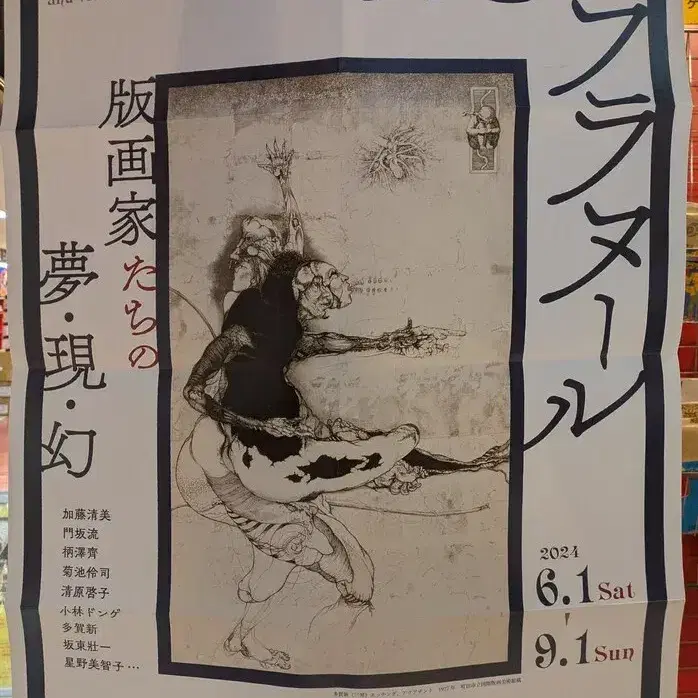 フラヌール
版画家たちの
夢・現・幻
加藤清美
門坂流
柄澤齊
菊池伶司
清原啓子
小林ドンゲ
多賀新
坂東壯一
星野美智子…
2024
6.1 Sat
9.1 Sun